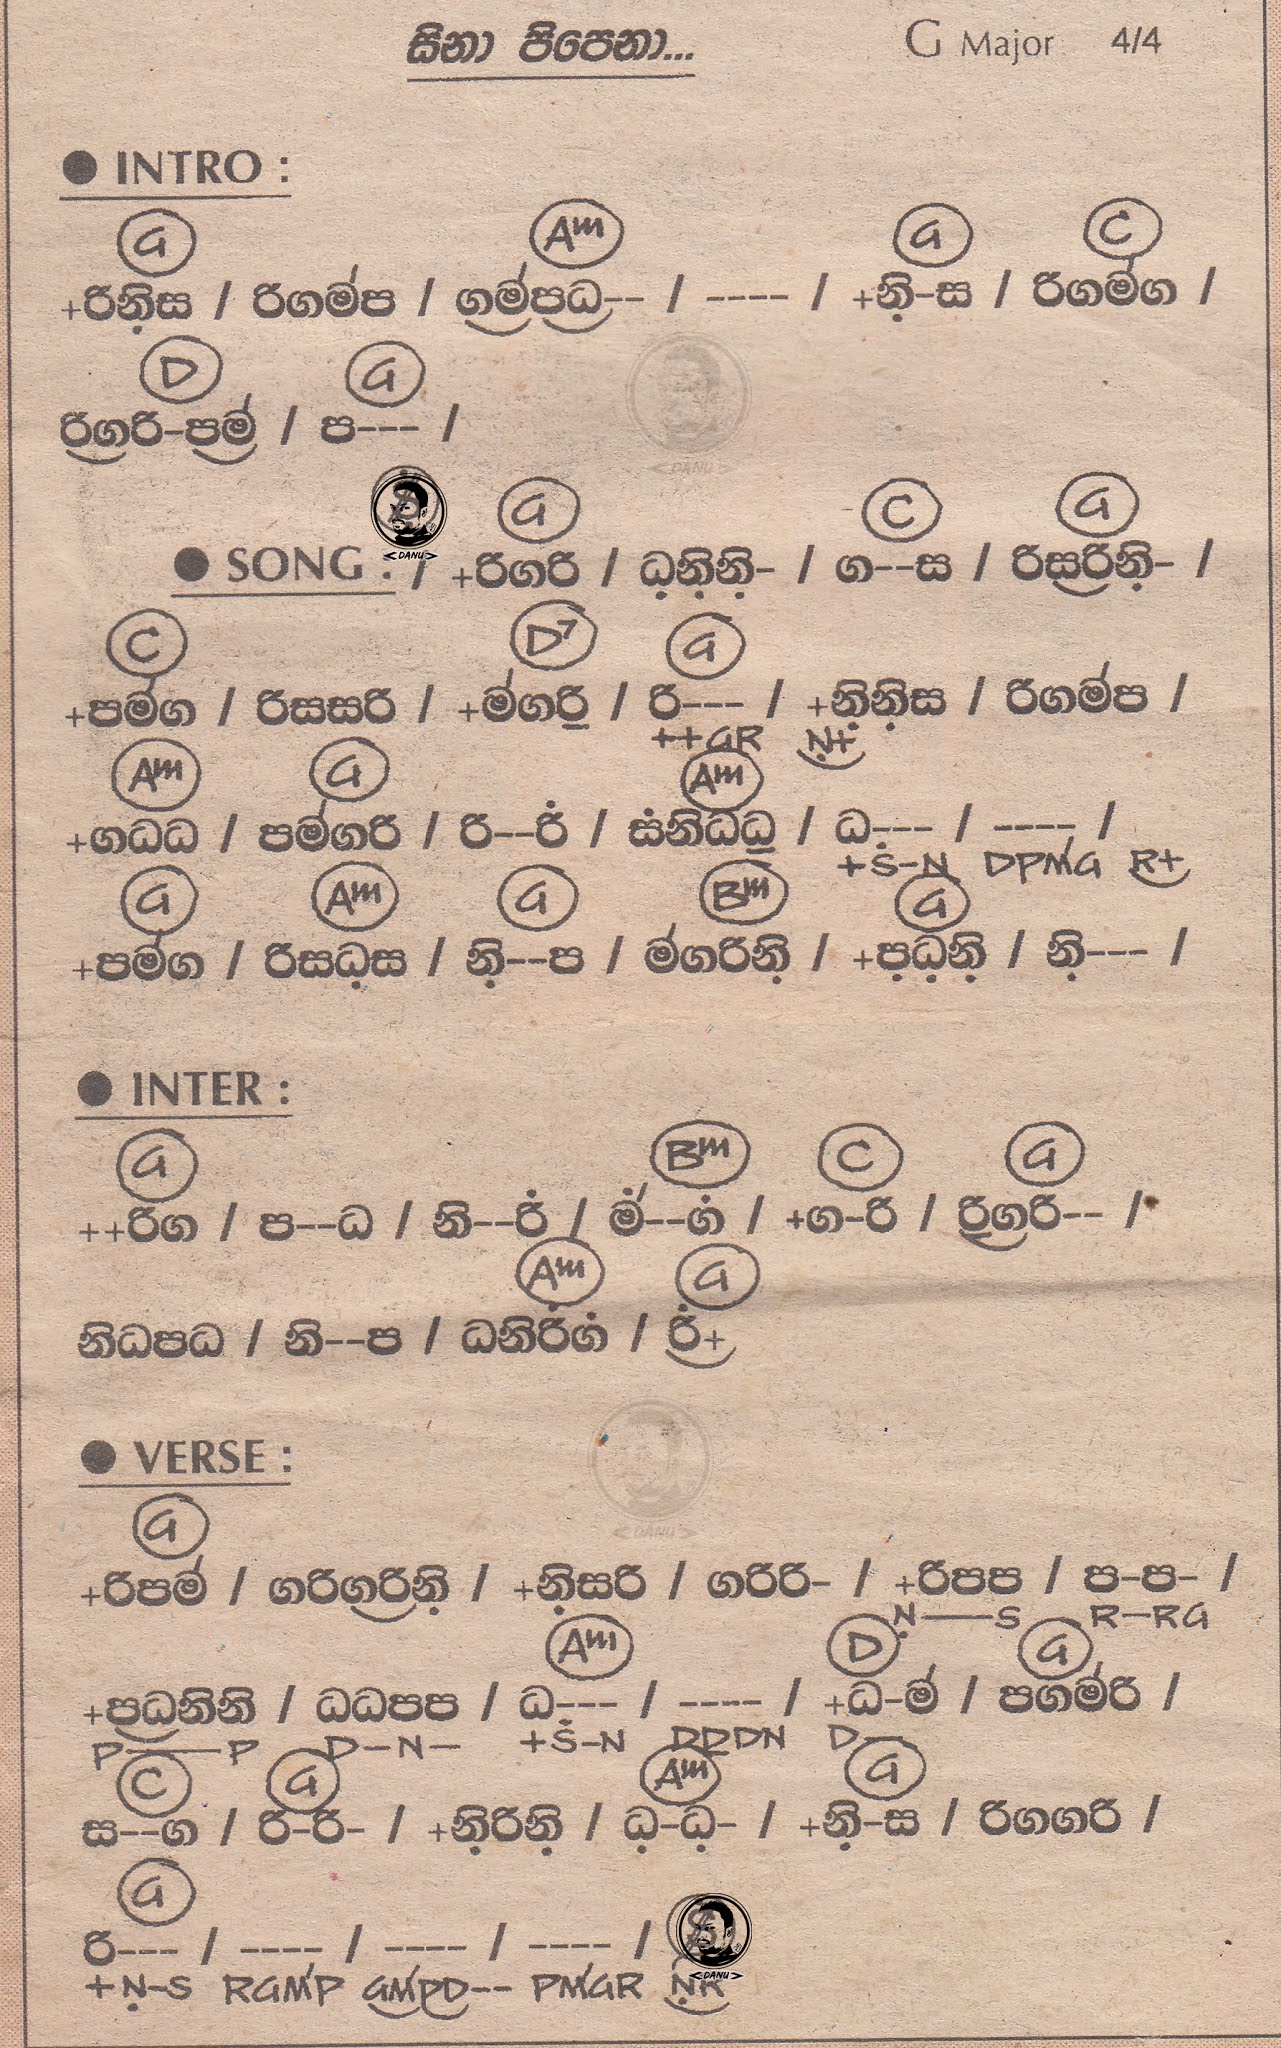 සිනා පිපෙනා... G Major 4/4
● INTRO :
G Am G C
+රිනි̣ස / රිගම්ප / ගම්පධ-- / ---- / +නි̣-ස / රිගම්ග /
D G
රිගරි-පම් / ප--- /
G C G
● SONG : / +රිගරි / ධ̣නි̣නි̣- / ග--ස / රිසරිනි̣- /
C D7 G
+පම්ග / රිසසරි / +ම්ගරි / රි--- / +නි̣නි̣ස / රිගම්ප /
++GR Ṇ+
Am G Am
+ගධධ / පම්ගරි / රි--රි̇ / ස̇නිධධ / ධ--- / ---- /
+Ṡ-N DPM'G R+
G Am G Bm G
+පම්ග / රිසධ̣ස / නි̣--ප / ම්ගරිනි̣ / +ප̣ධ̣නි̣ / නි̣--- /
● INTER :
G Bm C G
++රිග / ප--ධ / නි--රි̇ / ම්̇--ග̇ / +ග-රි / රිගරි-- /
Am G
නිධපධ / නි--ප / ධනිරි̇ග̇ / රි̇+
● VERSE :
G
+රිපම් / ගරිගරිනි̣ / +නි̣සරි / ගරිරි- / +රිපප / ප-ප- /
Ṇ——S R-RG
Am D G
+පධනිනි / ධධපප / ධ--- / ---- / +ධ-ම් / පගම්රි /
P——P D-N- +Ṡ-N DDDN D—
C G Am G
ස--ග / රි-රි- / +නි̣රිනි̣ / ධ̣-ධ̣- / +නි̣-ස / රිගගරි /
G
රි--- / ---- / ---- / ---- /
+Ṇ-S RGM'P GM'PD-- PM'GR ṆR
<DANU>
<DANU>
<DANU>
<DANU>